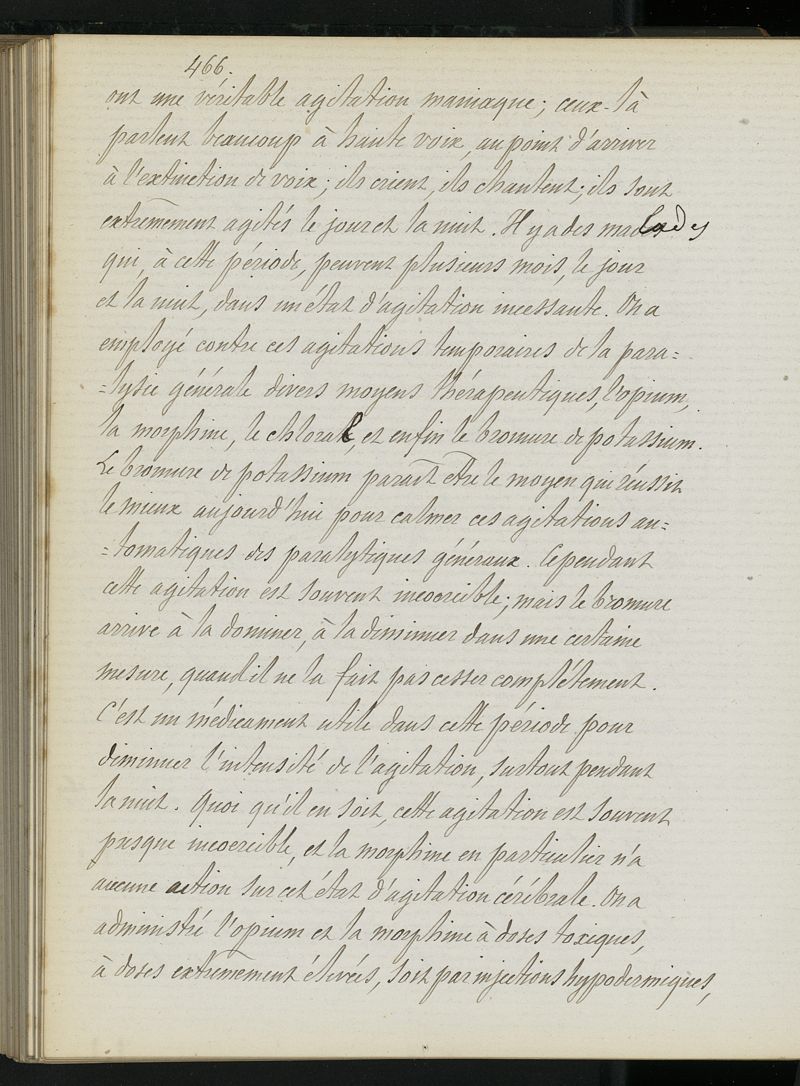 466.
ont une véritable agitation maniaque; ceux-là
parlent beaucoup à haute voix, au point d'arriver
à l'extinction de voix; ils crient, ils chantent; ils sont
extrêmement agités le jour et la nuit. Il y a des malades
qui, à cette période, peuvent plusieurs mois, le jour
et la nuit, dans un état d'agitation incessante. On a
employé contre ces agitations temporaires de la para=
=lysie générale divers moyens thérapeutiques, l'opium,
la morphine, le chloral, et enfin le bromure de potassium.
Le bromure de potassium paraît être le moyen qui réussit
le mieux aujourd'hui pour calmer ces agitations au=
=tomatiques des paralytiques généraux. Cependant
cette agitation est souvent incoercible; mais le bromure
arrive à la dominer, à la diminuer dans une certaine
mesure, quand il ne la fait pas cesser complétement.
C'est un médicament utile dans cette période pour
diminuer l'intensité de l'agitation, surtout pendant
la nuit. Quoi qu'il en soit, cette agitation est souvent
presque incoercible, et la morphine en particulier n'a
aucune action sur cet état d'agitation cérébrale. On a
administré l'opium et la morphine à doses toxiques,
à doses extrêmement élevées, soit par injections hypodermiques,